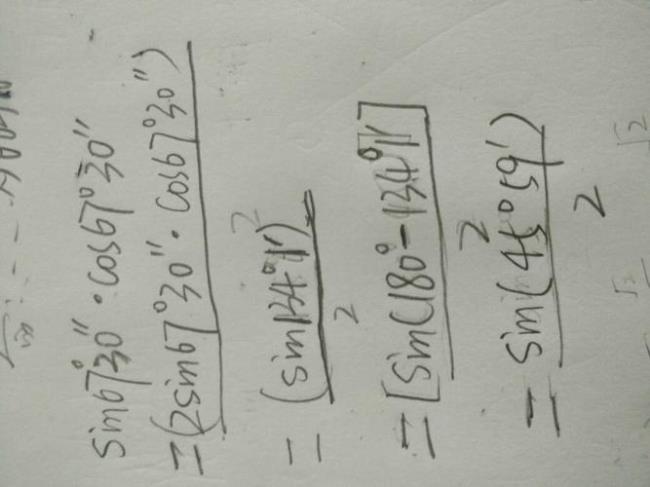 sin67°30″·cos67°30″
=(2sin67°30″·cos67°30″)/2
=(sin134°1′)/2
=[sin(180°-134°1′]/2
=sin(45°59′)/2